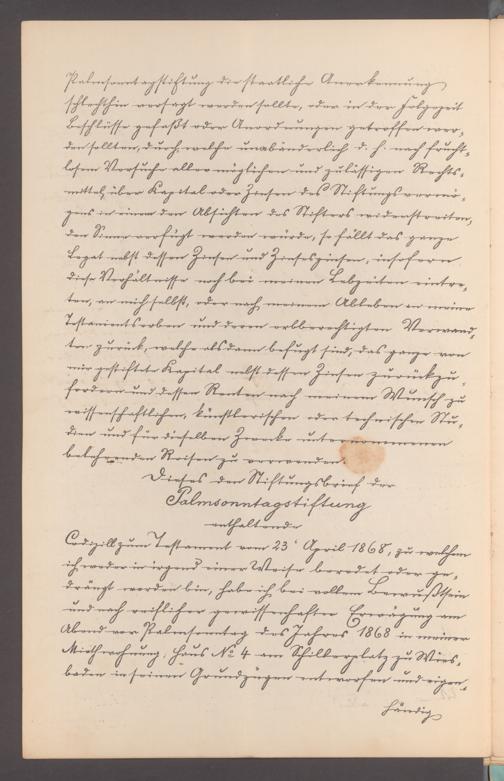 Palmsonntagstiftung die staatliche Anerkennung
schlechthin versagt werden sollte, oder in der Folgezeit
Beschlüsse gefaßt oder Anordnungen getroffen wer-
den sollten, durch welche unabänderlich d. h. nach frucht-
losem Versuche aller möglichen und zulässigen Rechts-
mittel, über Kapital oder Zinsen des Stiftungsvermö-
gens in einem den Absichten des Stifters widerstreiten-
den Sinne verfügt werden würde, so fällt das ganze
Legat nebst dessen Zinsen und Zinseszinsen, insofern
diese Verhältnisse noch bei meinen Lebzeiten eintre-
ten, an mich selbst, oder nach meinem Ableben an meine
Testamentserben und deren vollberechtigten Verwand-
ten zurück, welche alsdann befugt sind, das ganze von
mir gestiftete Kapital nebst dessen Zinsen zurückzu-
fordern und dessen Renten nach meinem Wunsch zu
wissenschaftlichen, künstlerischen oder technischen Stu-
dien und für dieselben Zwecke unternommenen
belehrenden Reisen zu verwenden.
Dieses den Stiftungsbrief der
Palmsonntagstiftung
enthaltende
Codizill zum Testament vom 23. April 1868, zu welchem
ich weder in irgend einer Weise beredet oder ge-
drängt worden bin, habe ich bei vollem Bewußtsein
und nach reiflicher gewissenhafter Erwägung am
Abend vor Palmsonntag des Jahres 1868 in meiner
Miethwohnung, Haus No 4 am Schillerplatz zu Wies-
baden in seinen Grundzügen entworfen und eigen-
händig